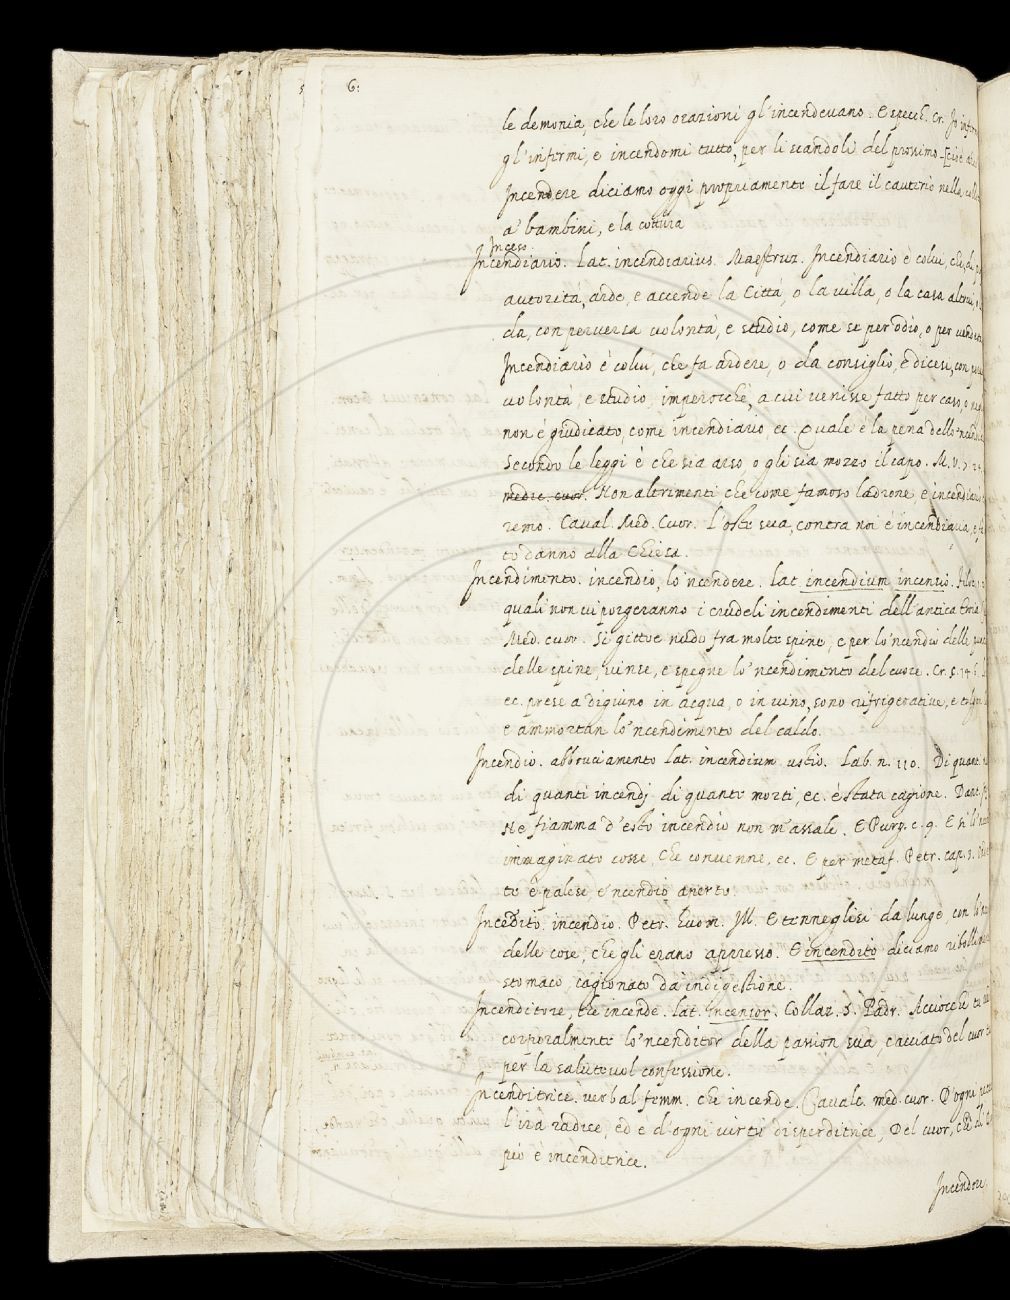 6:
le demonia, che le loro orazioni gl'incendeuano. E specch. Cr. Io infermo
gl'infermi, e incendomi tutto, per li scandoli del prossimo
Incendere diciamo oggi propriamente il fare il cauterio nella
a bambini, e la cottura
Inceso.
Incendiario. Lat. incendiarius. Maestruz. Incendiario è colui, che, di
autorità, arde, e accende la Città, o la uilla, o la casa altrui,
da, con peruersa uolontà, e studio, come se per odio, o per uendetta
Incendiario è colui, che fa ardere, o da consiglio, e dicesi, con
uolontà, e studio, imperocchè, a cui uenisse fatto per caso, o
non è giudicato, come incendiario, ec. Quale è la pena dello 'ncendiario
Secondo le leggi è che sia arso o gli sia mozzo il capo. M. V. 7.
medic. cuor. Non altrimenti, che come famoso ladrone, e incendiario
remo. Caual. Med. Cuor. L'oste sua, contra noi è incendiaria,
to danno alla Chiesa.
Incendimento. incendio, lo ncendere. Lat. incendium incensio.
quali non ui porgeranno i crudeli incendimenti dell'antica
Med. cuor. Si gittoe nudo fra molte spine, e per lo 'ncendio delle
delle spine, uinse, e spegne lo 'ncendimento del cuore. Cr. 5.
ec. prese a digiuno in acqua, o in uino, sono rifrigeratiue, e
e ammortan lo 'ncendimento del caldo.
Incendio. abbruciamento Lat. incendium ustio. Lab. n. 110. Di quanti
di quanti incendj di quante morti, ec. è stata cagione. Dant.
Ne fiamma d'esto incendio non m'assale. E Purg. c. 9. E sì
immaginato cosse, che conuenne, ec. E per metaf. Petr. cap. 3.
te è palese, e 'ncendio aperto.
Incedito. incendio. Petr. huom. Ill. E tenneglisi da lunge con
delle cose, che gli erano appresso. E incendito diciamo
stomaco, cagionato da indigestione.
Incenditore, che incende. Lat. incensor. Collaz. S. Padr. Acciocchè
corporalmente lo 'ncenditor della passion sua, cacciato del cuor
per la saluteuol confessione.
Incenditrice. uerbal femm. che incende. Caualc. med. cuor. D'ogni
l'ira radice, ed e d'ogni uirtù disperditrice, Del cuor,
piò è incenditrice.
Incendore.